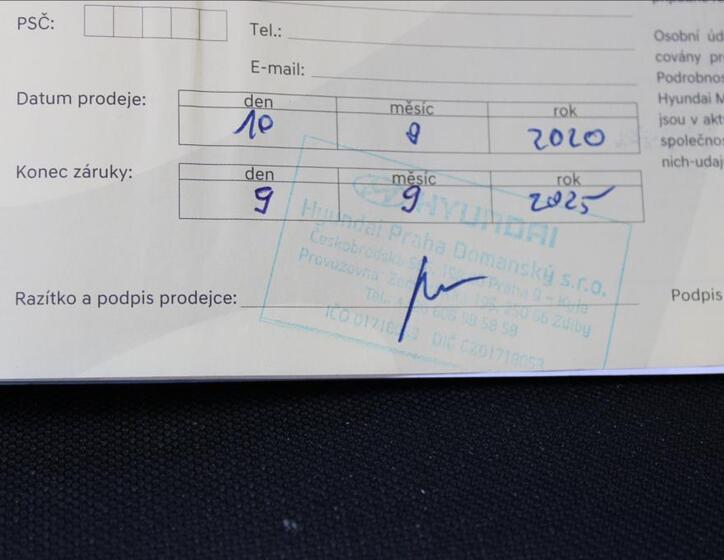 PSČ:
Tel.:
E-mail:
Datum prodeje:
den měsíc rok
10 9 2020
Konec záruky:
den měsíc rok
9 9 2025
HYUNDAI
Hyundai Praha Domanský s.r.o.
Českobrodská Praha 9 - Kyje
Provozovna: 250 66 Zdiby
Tel. 608 58 58 58
IČO DIČ CZ01718053
Razítko a podpis prodejce:
Podpis
Osobní úd
covány pr
Podrobnos
Hyundai M
jsou v akt
společnos
nich-udaj